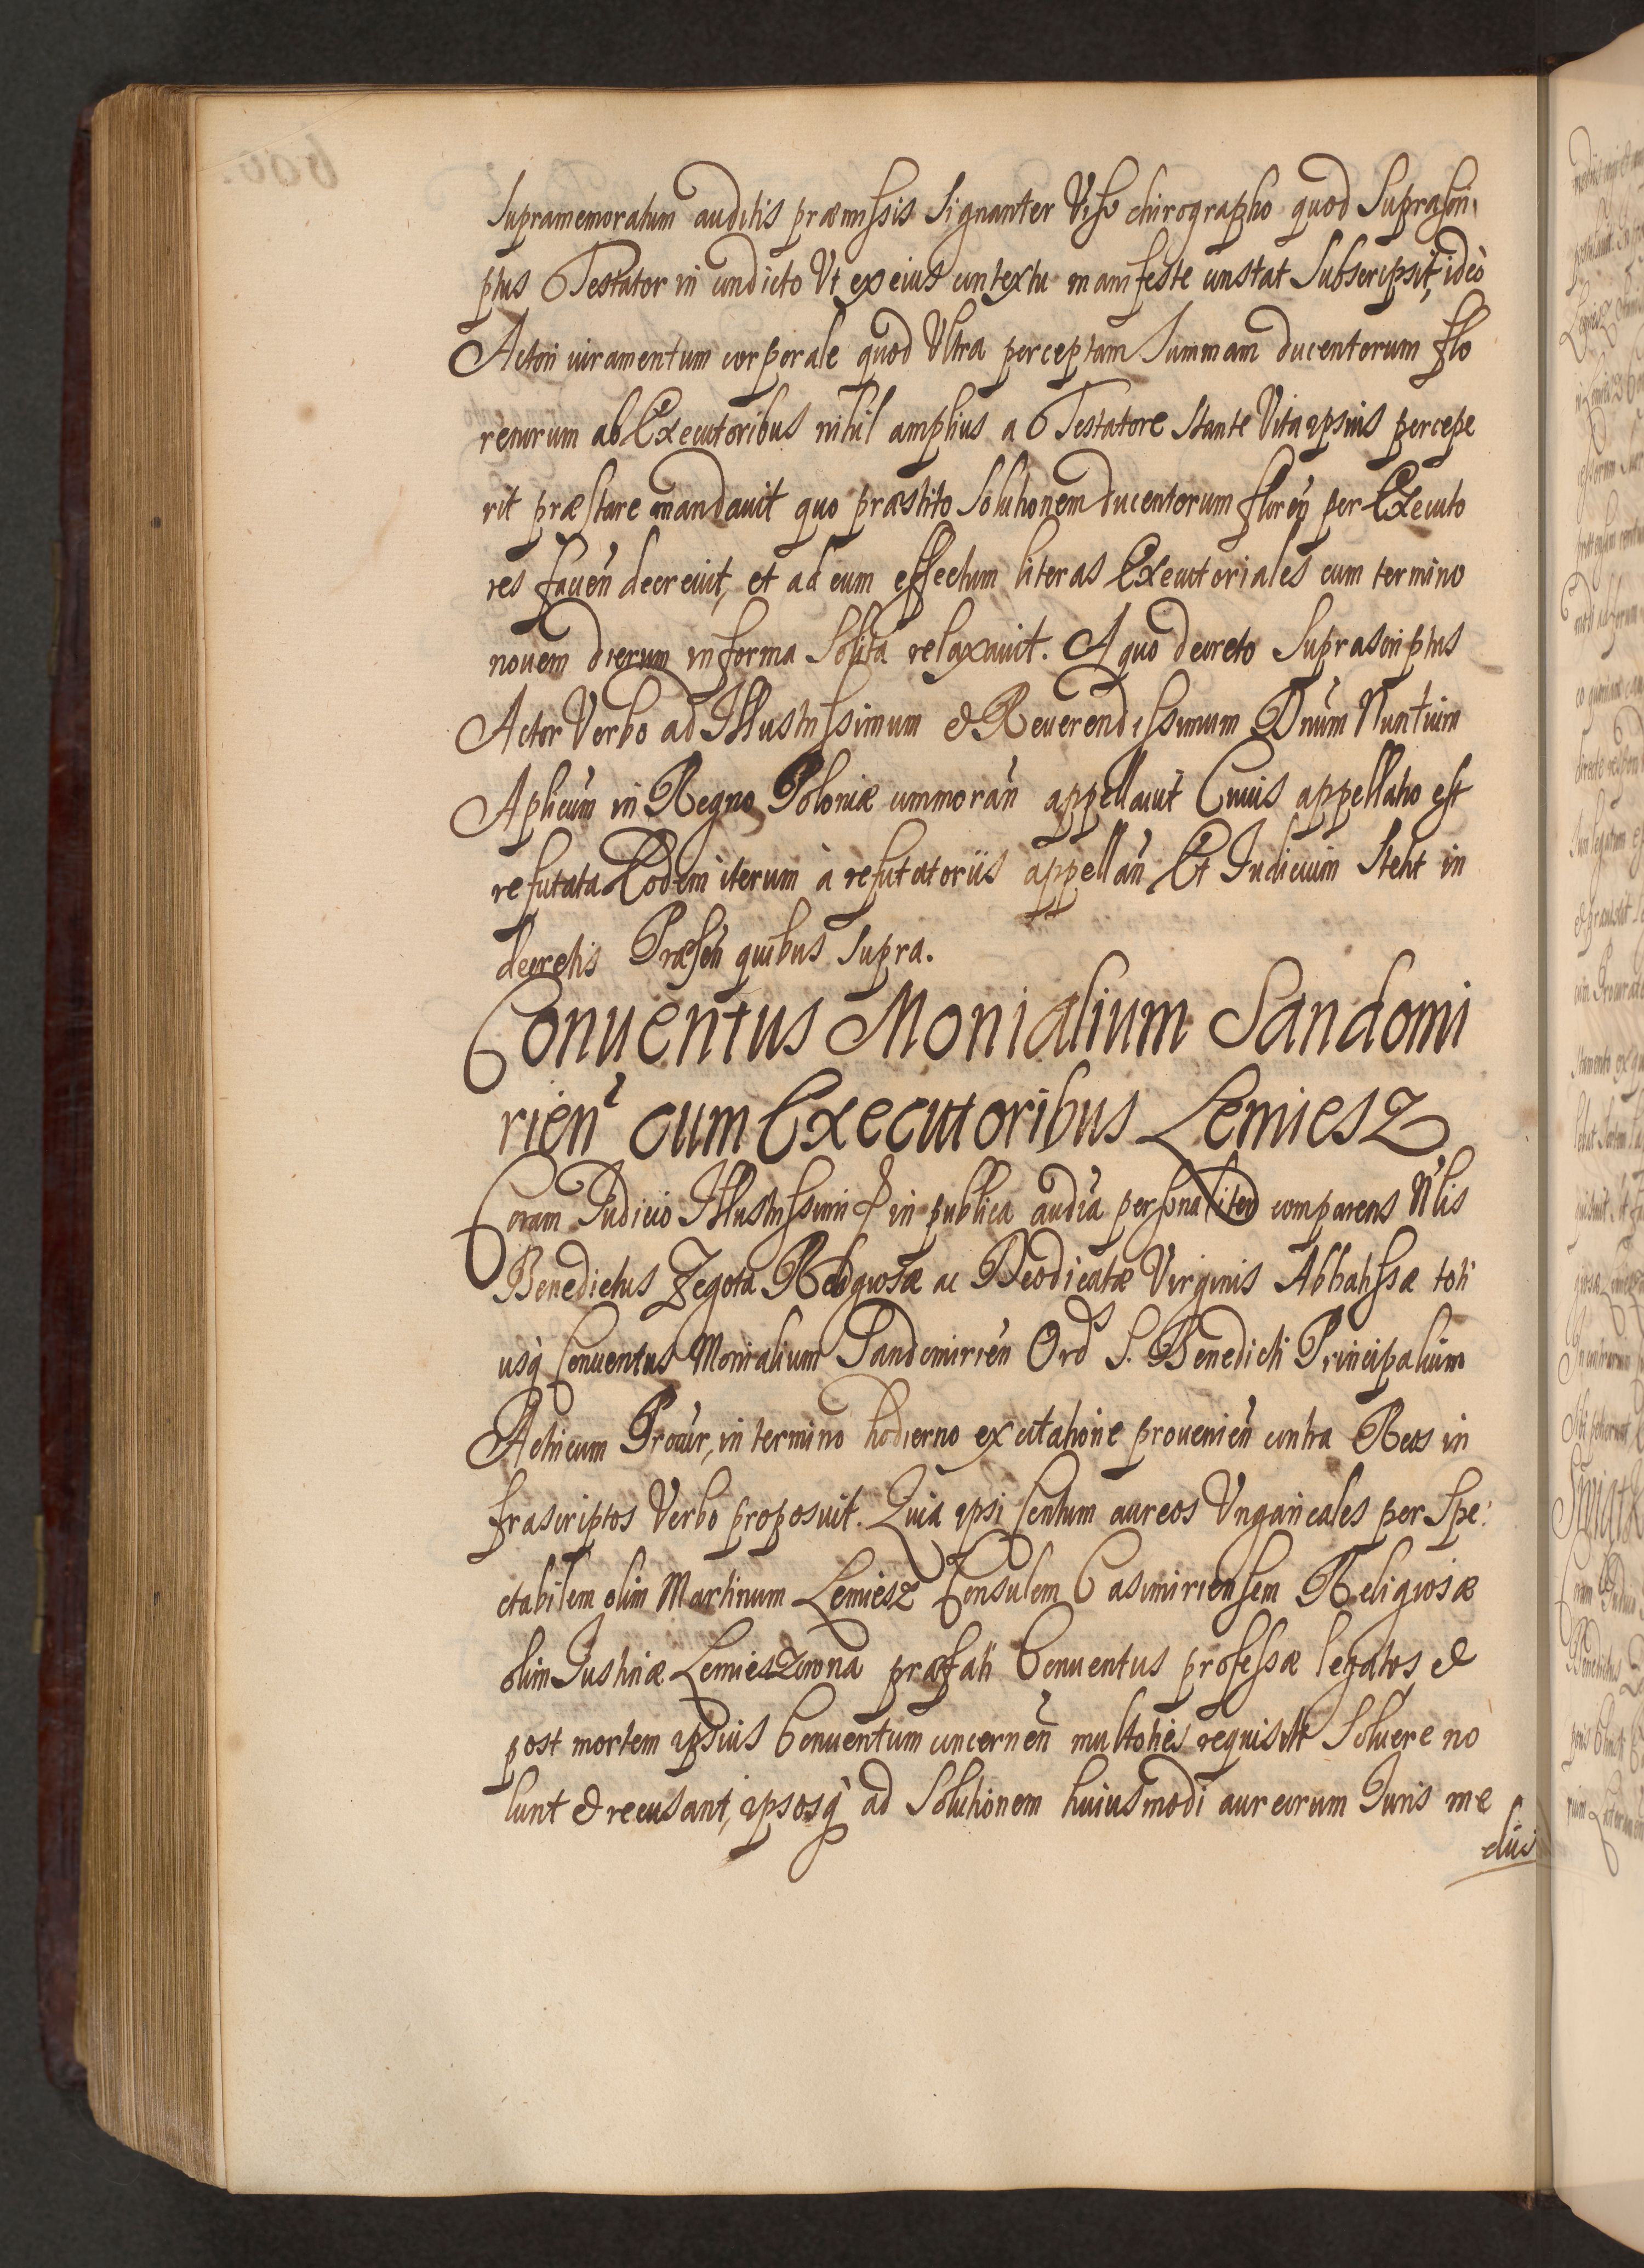 Supramemoratum auditis præmissis Signanter Viso chirographo quod Suprascri,
ptus Testator in condicto Vt ex eius contextu manifeste constat Subscripsit, ideò
Actori iuramentum corporale quod Vltra perceptam Summam ducentorum flo
renorum ab Executoribus nihil amplius a Testatore Stante Vita ipsius percepe
rit præstare mandauit quo præstito Solutionem ducentorum floreń per Executo
res facień decreuit, et ad eum effectum literas Executoriales cum termino
nouem dierum in forma Solita relaxauit. A quo decreto Suprascriptus
Actor Verbo ad Illustrissimum & Reuerendissimum Dnum Nuntium
Aplicum in Regno Poloniæ commorań appellauit Cuius appellatio est
refutata Eodem iterum à refutatoriis appellań Et Iudicium Stetit in
decretis Præseń quibus Supra.
Conuentus Monialium Sandomi
rień cum Executoribus Lemiesz
Coram Iudicio Illustrissimi & in publica audia personaliter comparens Nlis
Benedictus Zegota Religiosæ ac Deodicatæ Virginis Abbatissæ toti
usq Conuentus Monialium Sandomirień Ord S. Benedicti Principalium
Actricum Procur, in termino hodierno ex citatione prouenień contra Reos in
frascriptos Verbo proposuit. Quia ipsi Centum aureos Vngaricales per Spe:
ctabilem olim Martinum Lemiesz Consulem Casimiriensem Religiosæ
olim Iustinæ Lemieszowna præfati Conuentus professæ legatos &
post mortem ipsius Conuentum concerneń multoties requisiti Soluere no
lunt & recusant, ipsosq ad Solutionem huiusmodi aureorum Iuris me
diis